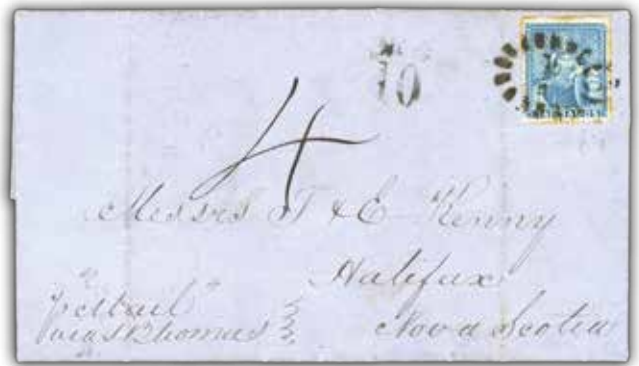 10
4
Messrs T & E Kenny
Halifax
Nova Scotia
via St Thomas